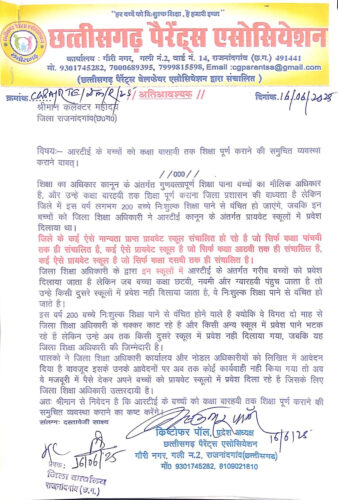 "हर बच्चे को निःशुल्क शिक्षा, है हमारी इच्छा"
छत्तीसगढ़ पैरेंट्स एसोसियेशन
कार्यालय : गौरी नगर, गली नं.2, वार्ड नं. 14, राजनांदगांव (छ.ग.) 491441
मो. 9301745282, 7000689395, 7999815598, Email :cgparentsa@gmail.com
(छत्तीसगढ़ पैरेंट्स वेलफेयर एसोसियेशन द्वारा संचालित)
क्रमांक. //अतिआवश्यक// दिनांक. 16/06/2025
श्रीमान कलेक्टर महोदय
जिला राजनांदगांव(छ०ग०)
विषयः- आरटीई के बच्चों को कक्षा बारहवी तक शिक्षा पूर्ण कराने की समुचित व्यवस्था
कराने बावत्।
//000//
शिक्षा का अधिकार कानून के अंतर्गत गुणवत्तापूर्ण शिक्षा पाना बच्चों का मौलिक अधिकार
है, और उन्हे कक्षा बारहवी तक शिक्षा पूर्ण कराना जिला प्रशासन की बाध्यता है लेकिन
जिले में इस वर्ष लगभग 200 बच्चे निःशुल्क शिक्षा पाने से वंचित हो जाएगे, जबकि इन
बच्चों को जिला शिक्षा अधिकारी ने आरटीई कानून के अंतर्गत प्रायवेट स्कूलों में प्रवेश
दिलाया था।
जिले के कई ऐसे मान्यता प्राप्त प्रायवेट स्कूल संचालित हो रहे है जो सिर्फ कक्षा पांचवी
तक ही संचालित है, कई ऐसे प्रायवेट स्कूल है जो सिर्फ कक्षा आठवी तक ही संचालित है,
कई ऐसे प्रायवेट स्कूल है जो सिर्फ कक्षा दसवी तक ही संचालित है।
जिला शिक्षा अधिकारी के द्वारा इन स्कूलों में आरटीई के अंतर्गत गरीब बच्चों को प्रवेश
दिलाया जाता है लेकिन जब बच्चा कक्षा छटवी, नवमी और ग्यारहवी पहुंच जाता है तो
उन्हे किसी दुसरे स्कूलों में प्रवेश नही दिलाया जाता है, वे निःशुल्क शिक्षा पाने से वंचित हो
जाते है।
इस वर्ष 200 बच्चे निःशुल्क शिक्षा पाने से वंचित होने वाले हैं क्योकि वे विगत दो माह से
जिला शिक्षा अधिकारी के चक्कर काट रहे है और किसी अन्य स्कूल में प्रवेश पाने भटक
रहे है लेकिन उन्हे अब तक किसी दुसरे स्कूल में प्रवेश नही दिलाया गया, जबकि यह
जिला शिक्षा अधिकारी की जिम्मेदारी है।
पालको ने जिला शिक्षा अधिकारी कार्यालय और नोडल अधिकारीयों को लिखित में आवेदन
दिया है बावजूद इसके उनके आवेदनों पर अब तक कोई कार्यवाही नही किया गया तो अब
वे मजबूरी में पैसे देकर अपने बच्चों को प्रायवेट स्कूलों में प्रवेश दिला रहे है जिसके लिए
जिला शिक्षा अधिकारी उत्तरदायी है।
अतः श्रीमान से निवेदन है कि आरटीई के बच्चों को कक्षा बारहवी तक शिक्षा पूर्ण कराने की
समुचित व्यवस्था कराने का कष्ट करेंगे।
संलग्नः- दस्तावेजी साक्ष्य
क्रिष्टोफर पॉल, प्रदेश अध्यक्ष
छत्तीसगढ़ पैरेंट्स एसोसियेशन
गौरी नगर, गली न.2, राजनांदगांव (छ.ग.)
मो0 9301745282, 8109021810
16/6/25
16/06/25
जिला कार्यालय
राजनांदगांव (छ.ग.)